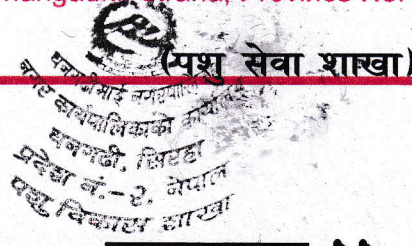 (पशु सेवा शाखा)
धनगढीमाई नगरपालिका
नगर कार्यपालिकाको कार्यालय
धनगढी, सिरहा
प्रदेश नं.-२, नेपाल
पशु विकास शाखा